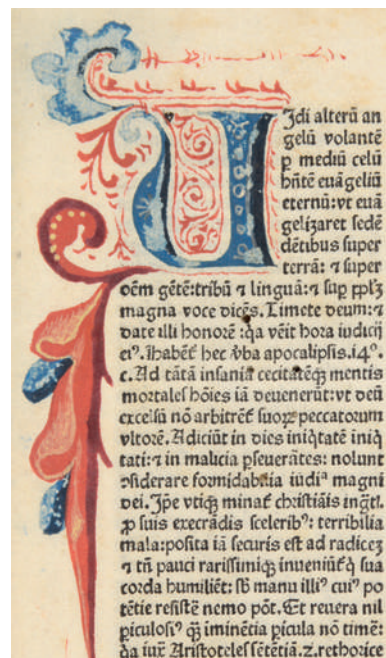 UIdi alterū an
gelū volantē
ꝑ mediū celū
hñtē euāgeliū
eternū: vt euā
gelizaret sedē
dētibus super
terrā: ⁊ super
oēm gētē: tribū ⁊ linguā: ⁊ suꝑ pplꝫ
magna voce dicēs. Timete deum: ⁊
date illi honorē: q̇a vēit hora iudicij
eiꝰ. Habēt̉ hec v̓ba apocalipsis. 14°.
c. Ad tātā insaniā cecitatēqꝫ mentis
mortales hōies iā deuenerūt: vt deū
excelsū nō arbitrēt̉ suoꝝ peccatorum
vltorē. Adiciūt in dies iniq̇tatē iniq̇
tati: ⁊ in malicia ꝑseuerātes: nolunt
ꝯsiderare formidabilia iudiᵃ magni
dei. Ip̄e vtiqꝫ minat̉ christiāis ingt̄i.
ꝓ suis execrādis sceleribꝰ: terribilia
mala: posita iā securis est ad radiceꝫ
⁊ tñ pauci rarissimiqꝫ inueniūt̉ q̇ sua
corda humiliēt: sb̄ manu illiꝰ cuiꝰ po
tētie resistē nemo pōt. Et reuera nil
ꝑiculosiꝰ qꝫ̄ iminētia ꝑicula nō timē:
q̇a iux̄ Aristotelis sētētiā. 2. rethorice